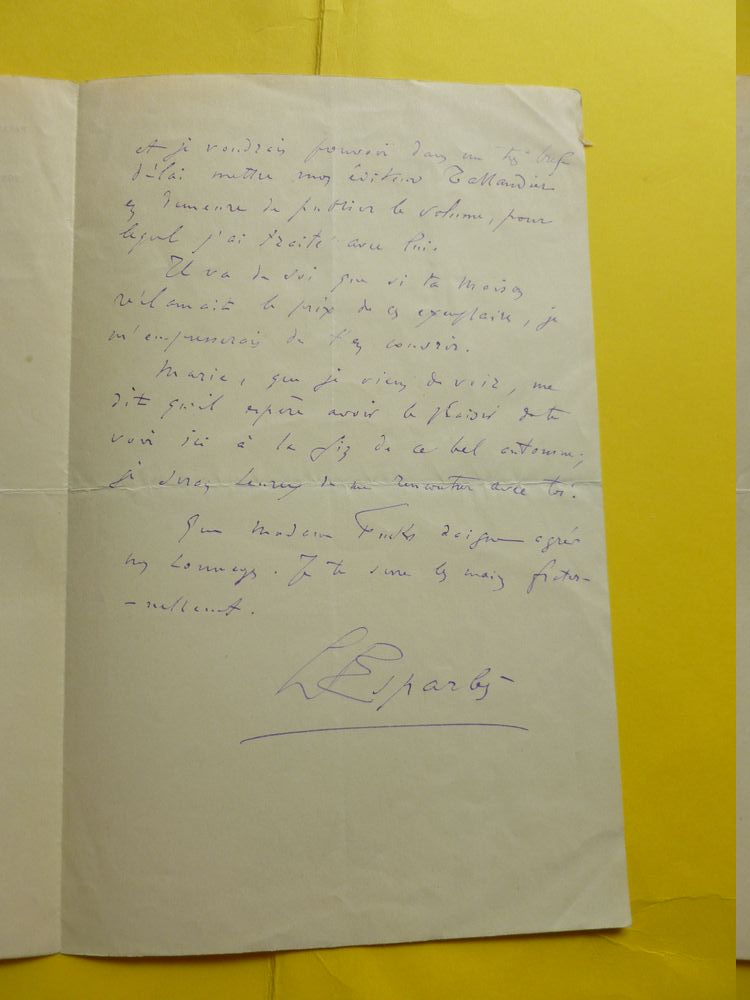 et je voudrais pouvoir dans un très bref
délai mettre mon éditeur Tallandier
en demeure de publier le volume, pour
lequel j'ai traité avec lui.
Il va de soi que si ta maison
réclamait le prix de ces exemplaires, je
m'empresserais de t'en couvrir.
Marie, que je viens de voir, me
dit qu'il espère avoir le plaisir de te
voir ici à la fin de ce bel automne;
je serai heureux de me rencontrer avec toi.
Que madame daigne agréer
mes hommages. Je te serre les mains frater-
-nellement.
D'Esparbès